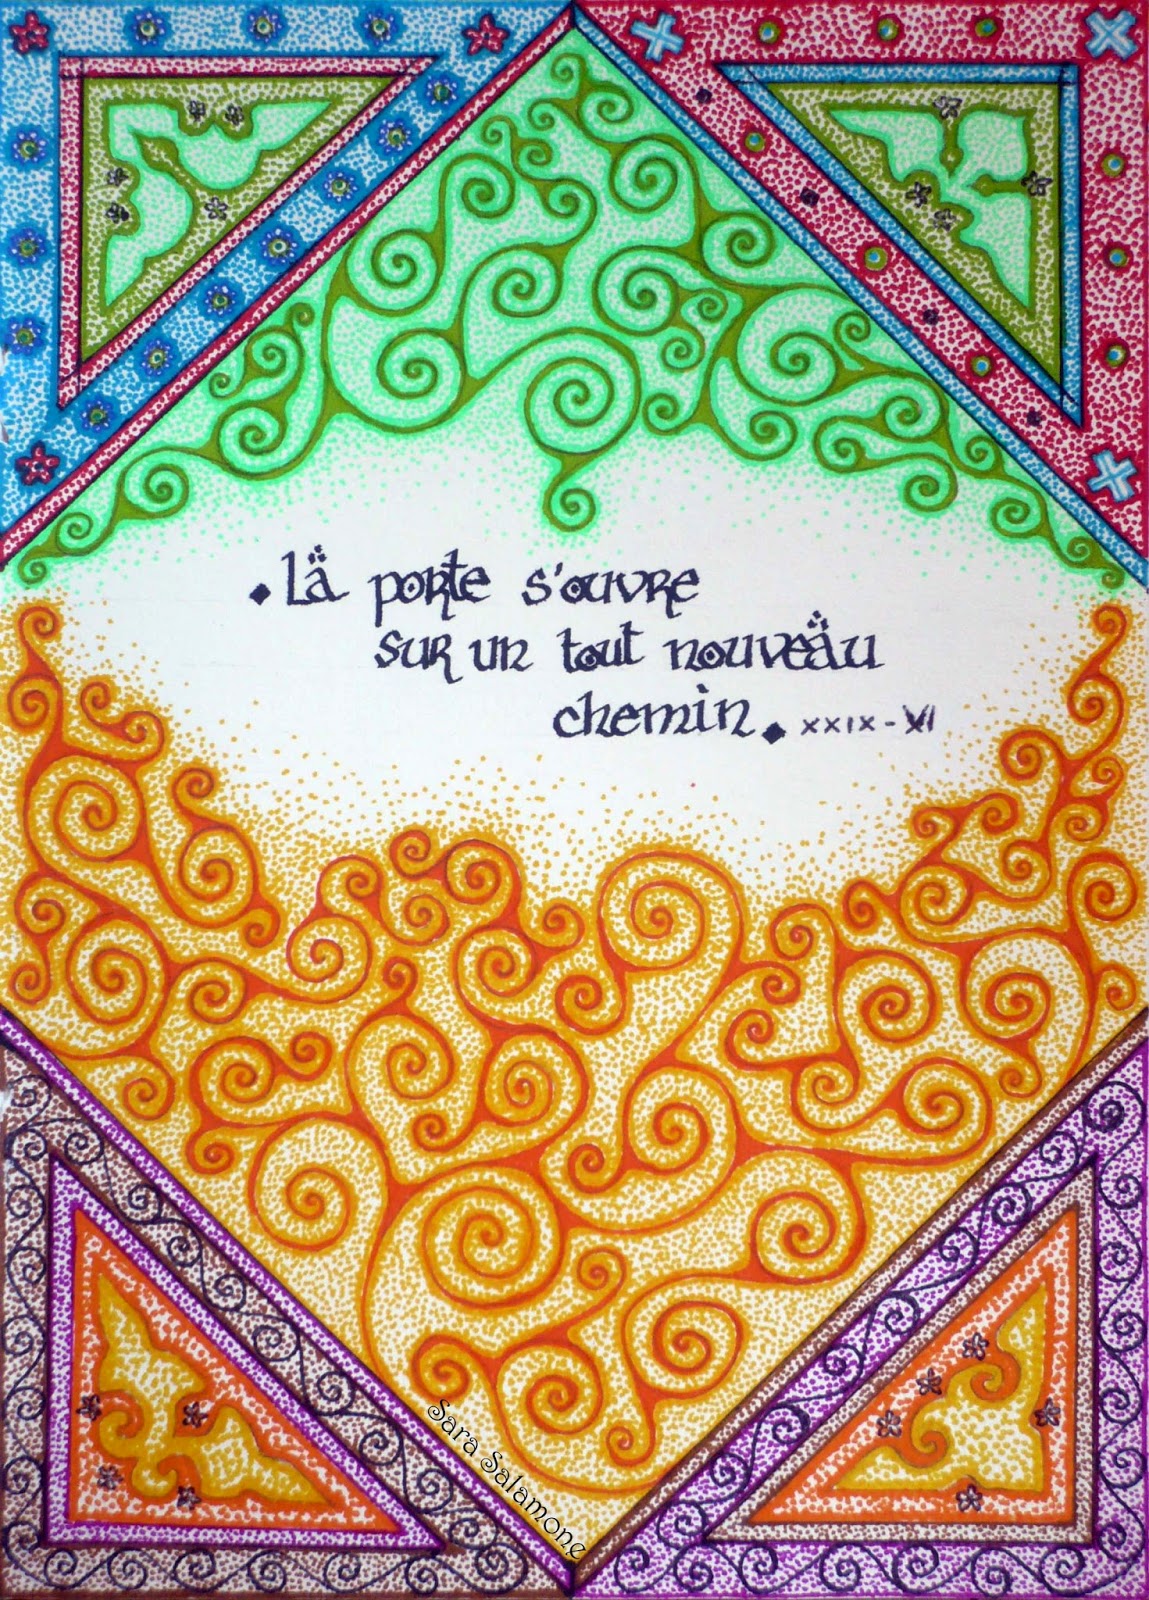 La porte s'ouvre
sur un tout nouveau
chemin. XXIX-VI
Sara Salamone